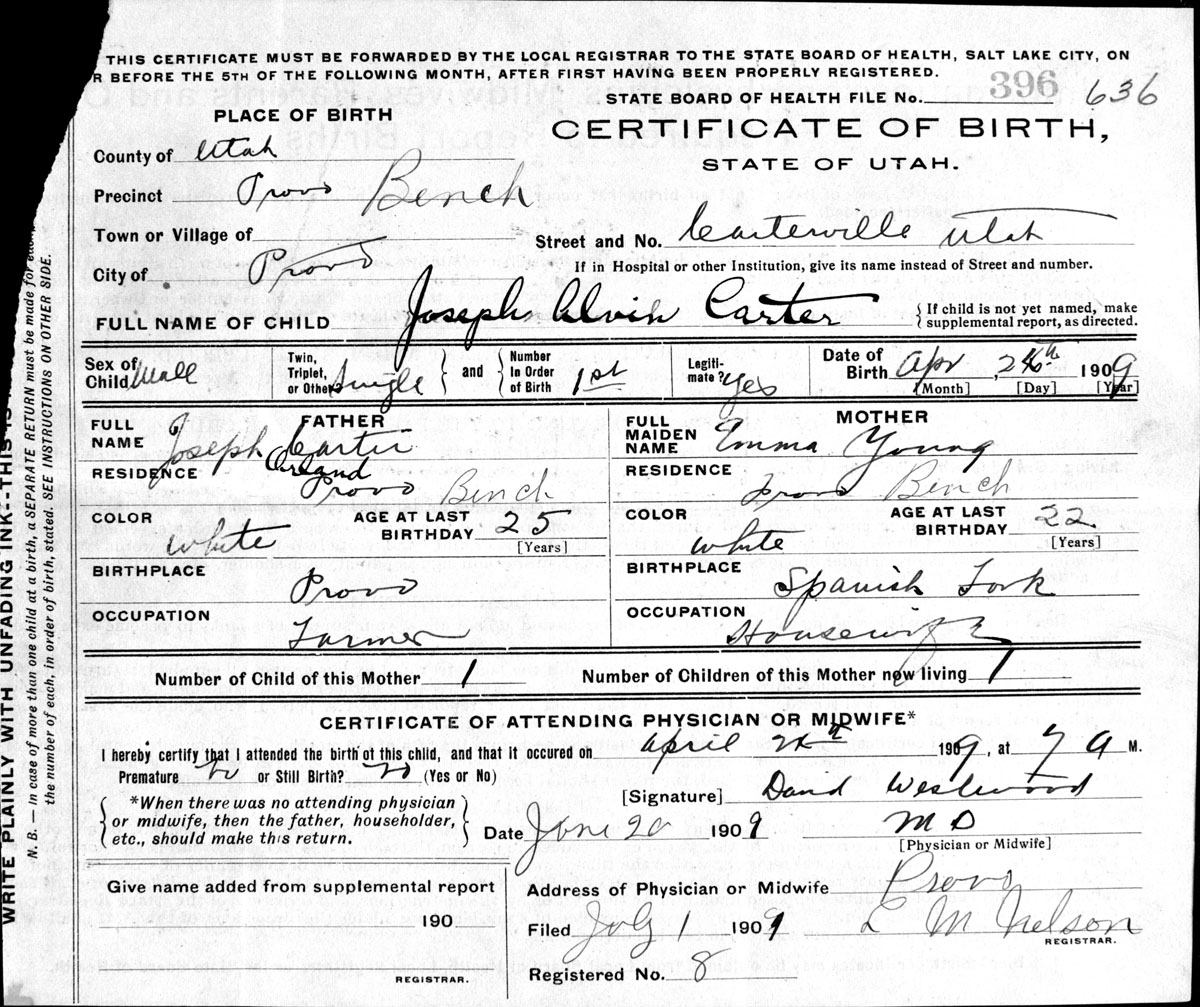 THIS CERTIFICATE MUST BE FORWARDED BY THE LOCAL REGISTRAR TO THE STATE BOARD OF HEALTH, SALT LAKE CITY, ON
R BEFORE THE 5TH OF THE FOLLOWING MONTH, AFTER FIRST HAVING BEEN PROPERLY REGISTERED.
STATE BOARD OF HEALTH FILE No. 396 636
PLACE OF BIRTH
CERTIFICATE OF BIRTH,
STATE OF UTAH.
County of Utah
Precinct Provo Bench
Town or Village of
Street and No. Carterville Utah
City of Provo
If in Hospital or other Institution, give its name instead of Street and number.
FULL NAME OF CHILD Joseph Alvin Carter
If child is not yet named, make
supplemental report, as directed.
Sex of Child Male
Twin, Triplet, or Other? Single
and
Number In Order of Birth 1st
Legiti-mate? Yes
Date of Birth Apr, 1909
[Month] [Day] [Year]
FATHER
FULL NAME Joseph Carter
RESIDENCE Provo Bench
COLOR White
AGE AT LAST BIRTHDAY 25
[Years]
BIRTHPLACE Provo
OCCUPATION Farmer
MOTHER
FULL MAIDEN NAME Emma Young
RESIDENCE Provo Bench
COLOR White
AGE AT LAST BIRTHDAY 22
[Years]
BIRTHPLACE Spanish Fork
OCCUPATION Housewife
Number of Child of this Mother 1
Number of Children of this Mother now living 1
CERTIFICATE OF ATTENDING PHYSICIAN OR MIDWIFE*
I hereby certify that I attended the birth of this child, and that it occured on April 1909, at 7 a M.
Premature No or Still Birth? No (Yes or No)
[Signature] David Westwood
*When there was no attending physician
or midwife, then the father, householder,
etc., should make this return.
Date June 20 1909
M D
[Physician or Midwife]
Give name added from supplemental report
190
REGISTRAR.
Address of Physician or Midwife Provo
Filed July 1 1909 L M Nelson
REGISTRAR.
Registered No. 8
WRITE PLAINLY WITH UNFADING INK--THIS IS
N. B. — In case of more than one child at a birth, a SEPARATE RETURN must be made for each,
the number of each, in order of birth, stated. SEE INSTRUCTIONS ON OTHER SIDE.